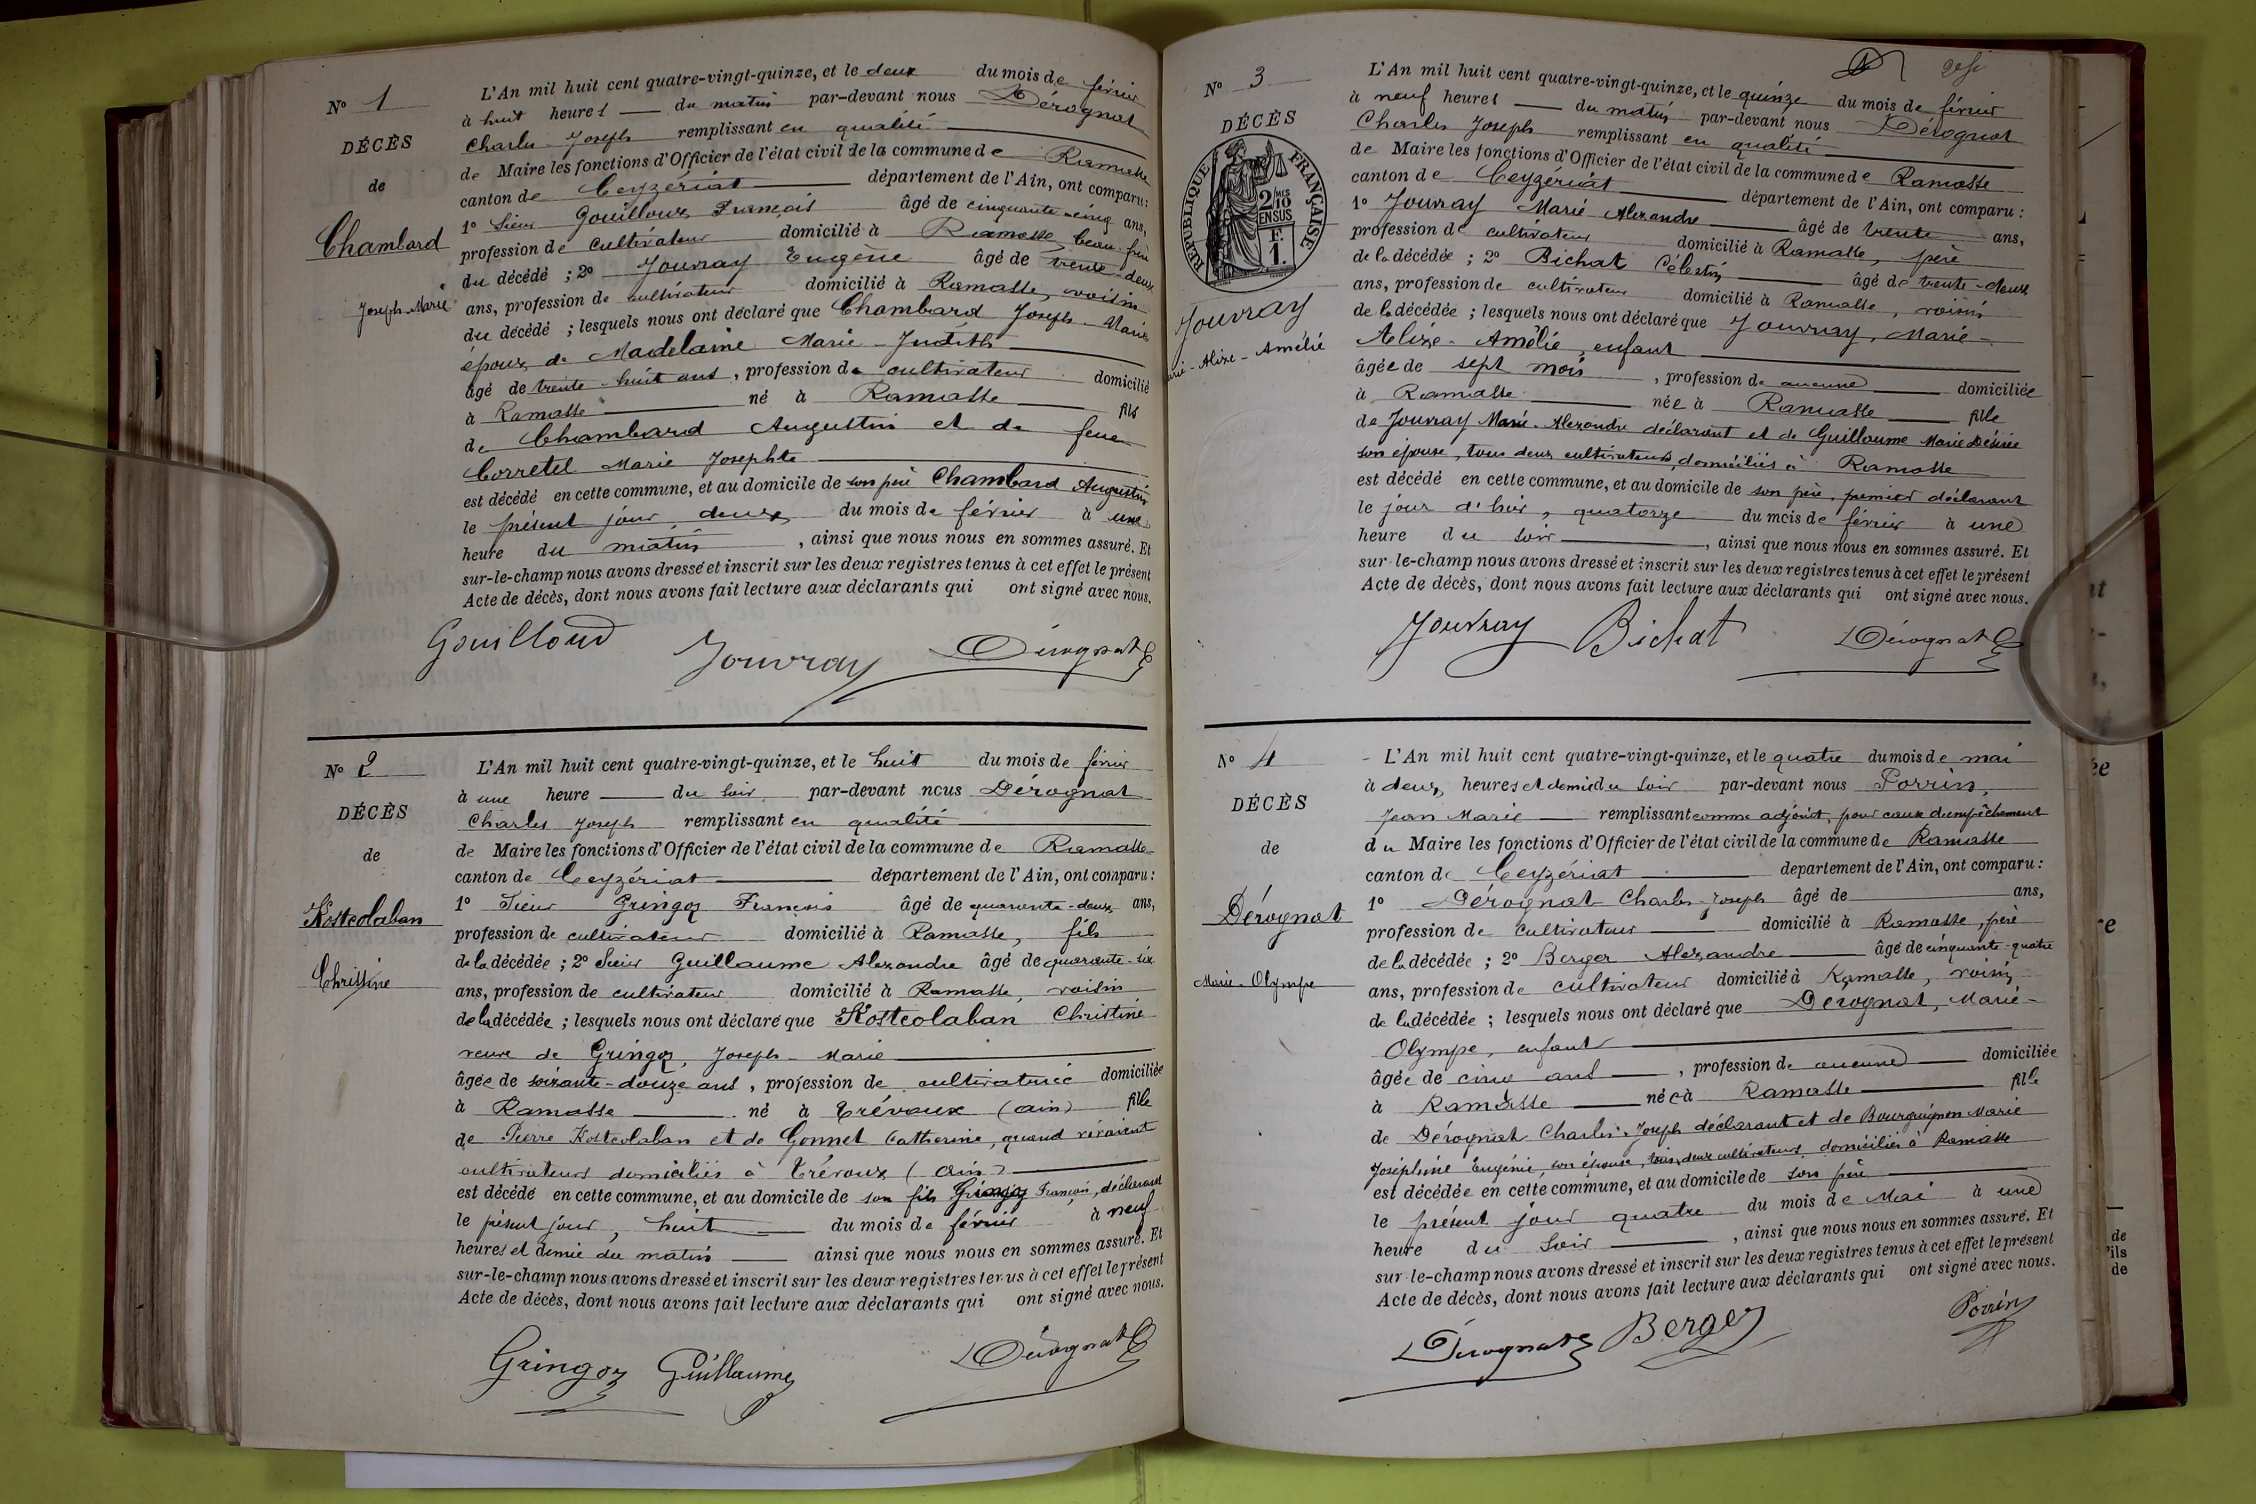 N° 1
DÉCÈS
de
Chambard
Joseph-Marie
L'An mil huit cent quatre-vingt-quinze, et le deux du mois de février
à huit heures du matin par-devant nous Dérognat
Charles Joseph remplissant en qualité
de Maire les fonctions d'Officier de l'état civil de la commune de Ramasse
canton de Ceyzériat département de l'Ain, ont comparu :
1° Sieur Gouilloux François âgé de cinquante-cinq ans,
profession de cultivateur domicilié à Ramasse, beau-père
du décédé ; 2° Jouvray Eugène âgé de trente-deux
ans, profession de cultivateur domicilié à Ramasse, voisin
du décédé ; lesquels nous ont déclaré que Chambard Joseph-Marie
époux de Madelaine Marie-Judith
âgé de trente-huit ans, profession de cultivateur domicilié
à Ramasse né à Ramasse fils
de Chambard Augustin et de feue
Corretel Marie Josephte
est décédé en cette commune, et au domicile de son père Chambard Augustin
le présent jour deux du mois de février à une
heure du matin, ainsi que nous nous en sommes assuré. Et
sur-le-champ nous avons dressé et inscrit sur les deux registres tenus à cet effet le présent
Acte de décès, dont nous avons fait lecture aux déclarants qui ont signé avec nous.
Gouilloud Jouvray Dérognat
N° 2
DÉCÈS
de
Kosteolaban
Christine
L'An mil huit cent quatre-vingt-quinze, et le huit du mois de février
à une heure du soir par-devant nous Dérognat
Charles Joseph remplissant en qualité
de Maire les fonctions d'Officier de l'état civil de la commune de Ramasse
canton de Ceyzériat département de l'Ain, ont comparu :
1° Sieur Gringoz François âgé de quarante-deux ans,
profession de cultivateur domicilié à Ramasse, fils
de la décédée ; 2° Sieur Guillaume Alexandre âgé de quarante-six
ans, profession de cultivateur domicilié à Ramasse, voisin
de la décédée ; lesquels nous ont déclaré que Kosteolaban Christine
veuve de Gringoz, Joseph-Marie
âgée de soixante-douze ans, profession de cultivatrice domiciliée
à Ramasse né à Trévoux (Ain) fille
de Pierre Kosteolaban et de Gonnet Catherine, quand vivaient
cultivateurs domiciliés à Trévoux (Ain)
est décédé en cette commune, et au domicile de son fils Gringoz François, déclarant
le présent jour, huit du mois de février à neuf
heures et demie du matin ainsi que nous nous en sommes assuré. Et
sur-le-champ nous avons dressé et inscrit sur les deux registres tenus à cet effet le présent
Acte de décès, dont nous avons fait lecture aux déclarants qui ont signé avec nous.
Gringoz Guillaume Dérognat
N° 3
DÉCÈS
RÉPUBLIQUE FRANÇAISE
2/10 MES
EN SUS
F.
1.
Jouvray
Marie-Alize-Amélie
L'An mil huit cent quatre-vingt-quinze, et le quinze du mois de février
à neuf heures du matin par-devant nous Dérognat
Charles Joseph remplissant en qualité
de Maire les fonctions d'Officier de l'état civil de la commune de Ramasse
canton de Ceyzériat département de l'Ain, ont comparu :
1° Jouvray Marie Alexandre âgé de trente ans,
profession de cultivateur domicilié à Ramasse, père
de la décédée ; 2° Bichat Célestin âgé de trente-deux
ans, profession de cultivateur domicilié à Ramasse, voisin
de la décédée ; lesquels nous ont déclaré que Jouvray, Marie-
Alize-Amélie, enfant
âgée de sept mois, profession de aucune domiciliée
à Ramasse née à Ramasse fille
de Jouvray Marie-Alexandre déclarant et de Guillaume Marie Désirée
son épouse, tous deux cultivateurs, domiciliés à Ramasse
est décédé en cette commune, et au domicile de son père, premier déclarant
le jour d'hier, quatorze du mois de février à une
heure du soir, ainsi que nous nous en sommes assuré. Et
sur-le-champ nous avons dressé et inscrit sur les deux registres tenus à cet effet le présent
Acte de décès, dont nous avons fait lecture aux déclarants qui ont signé avec nous.
Jouvray Bichat Dérognat
N° 4
DÉCÈS
de
Dérognat
Marie-Olympe
L'An mil huit cent quatre-vingt-quinze, et le quatre du mois de mai
à deux heures et demie du soir par-devant nous Porrin,
Jean Marie remplissant comme adjoint, pour cause d'empêchement
du Maire les fonctions d'Officier de l'état civil de la commune de Ramasse
canton de Ceyzériat département de l'Ain, ont comparu :
1° Dérognat Charles-Joseph âgé de ans,
profession de cultivateur domicilié à Ramasse, père
de la décédée ; 2° Berger Alexandre âgé de cinquante-quatre
ans, profession de cultivateur domicilié à Ramasse, voisin
de la décédée ; lesquels nous ont déclaré que Dérognat, Marie-
Olympe, enfant
âgée de cinq ans, profession de aucune domiciliée
à Ramasse née à Ramasse fille
de Dérognat Charles-Joseph déclarant et de Bourguignon Marie
Joséphine Eugénie, son épouse, tous deux cultivateurs, domiciliés à Ramasse
est décédée en cette commune, et au domicile de son père
le présent jour quatre du mois de Mai à une
heure du soir, ainsi que nous nous en sommes assuré. Et
sur-le-champ nous avons dressé et inscrit sur les deux registres tenus à cet effet le présent
Acte de décès, dont nous avons fait lecture aux déclarants qui ont signé avec nous.
Dérognat Berger Porrin